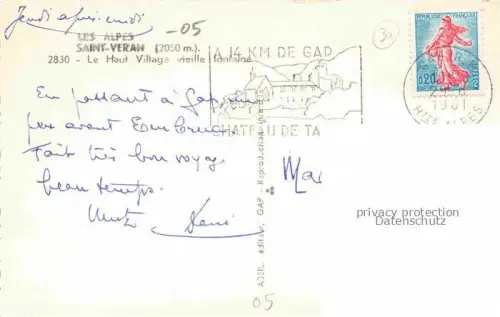 Jeudi après-midi
-05
30
LES ALPES
SAINT-VERAN (2050 m).
2830 - Le Haut Village vieille fontaine
A 14 KM DE GAP
CHATEAU DE TA
REPUBLIQUE FRANÇAISE
0,20
1961
HTES ALPES
En passant à Gap
pas avant Embrun
Fait très bon voyage
beau temps.
Mar
ABEIL, éditeur, GAP - Reproduction
privacy protection
Datenschutz
05